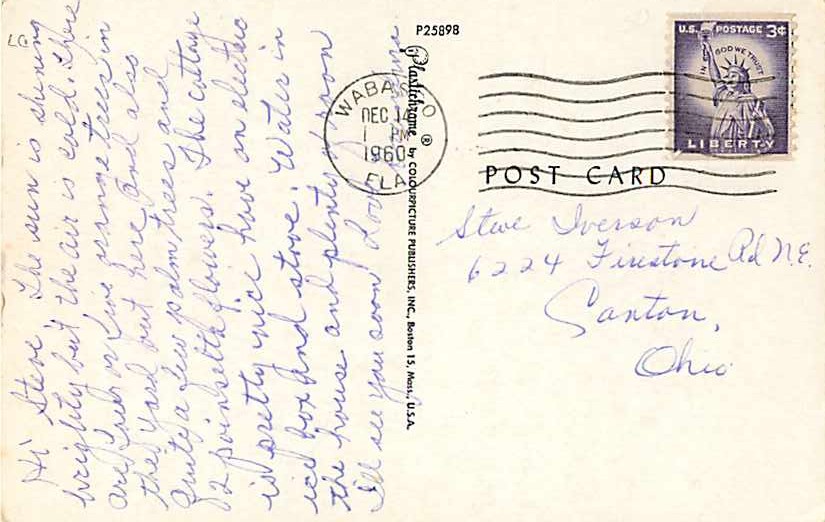 LG
Hi Steve The sun is shining
brightly but the air is cold. There
are four or five orange trees in
the yard out here and also
quite a few palm trees and
12 poinsettia flowers. The cottage
is pretty nice have an electric
ice box and stove. Water in
the house and plenty of room
I'll see you soon Love
P25898
Plastichrome ® by COLOURPICTURE PUBLISHERS, INC., Boston 15, Mass., U.S.A.
WABASSO
DEC 14
1 PM
1960
FLA.
U.S. POSTAGE 3¢
IN GOD WE TRUST
LIBERTY
POST CARD
Steve Iverson
6224 Firestone Rd N.E.
Canton,
Ohio